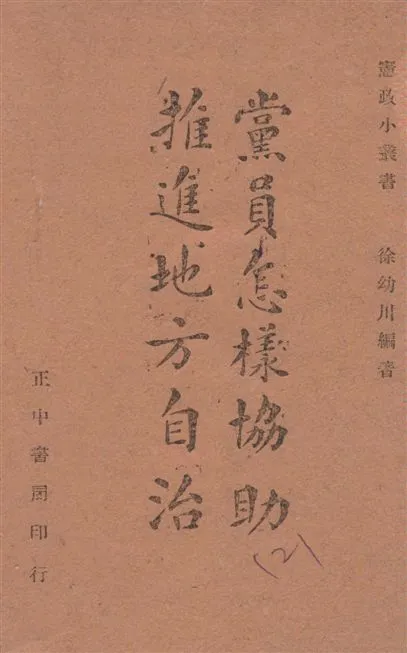 憲政小叢書 徐幼川編著
黨員怎樣協助
推進地方自治
(2)
正中書局印行